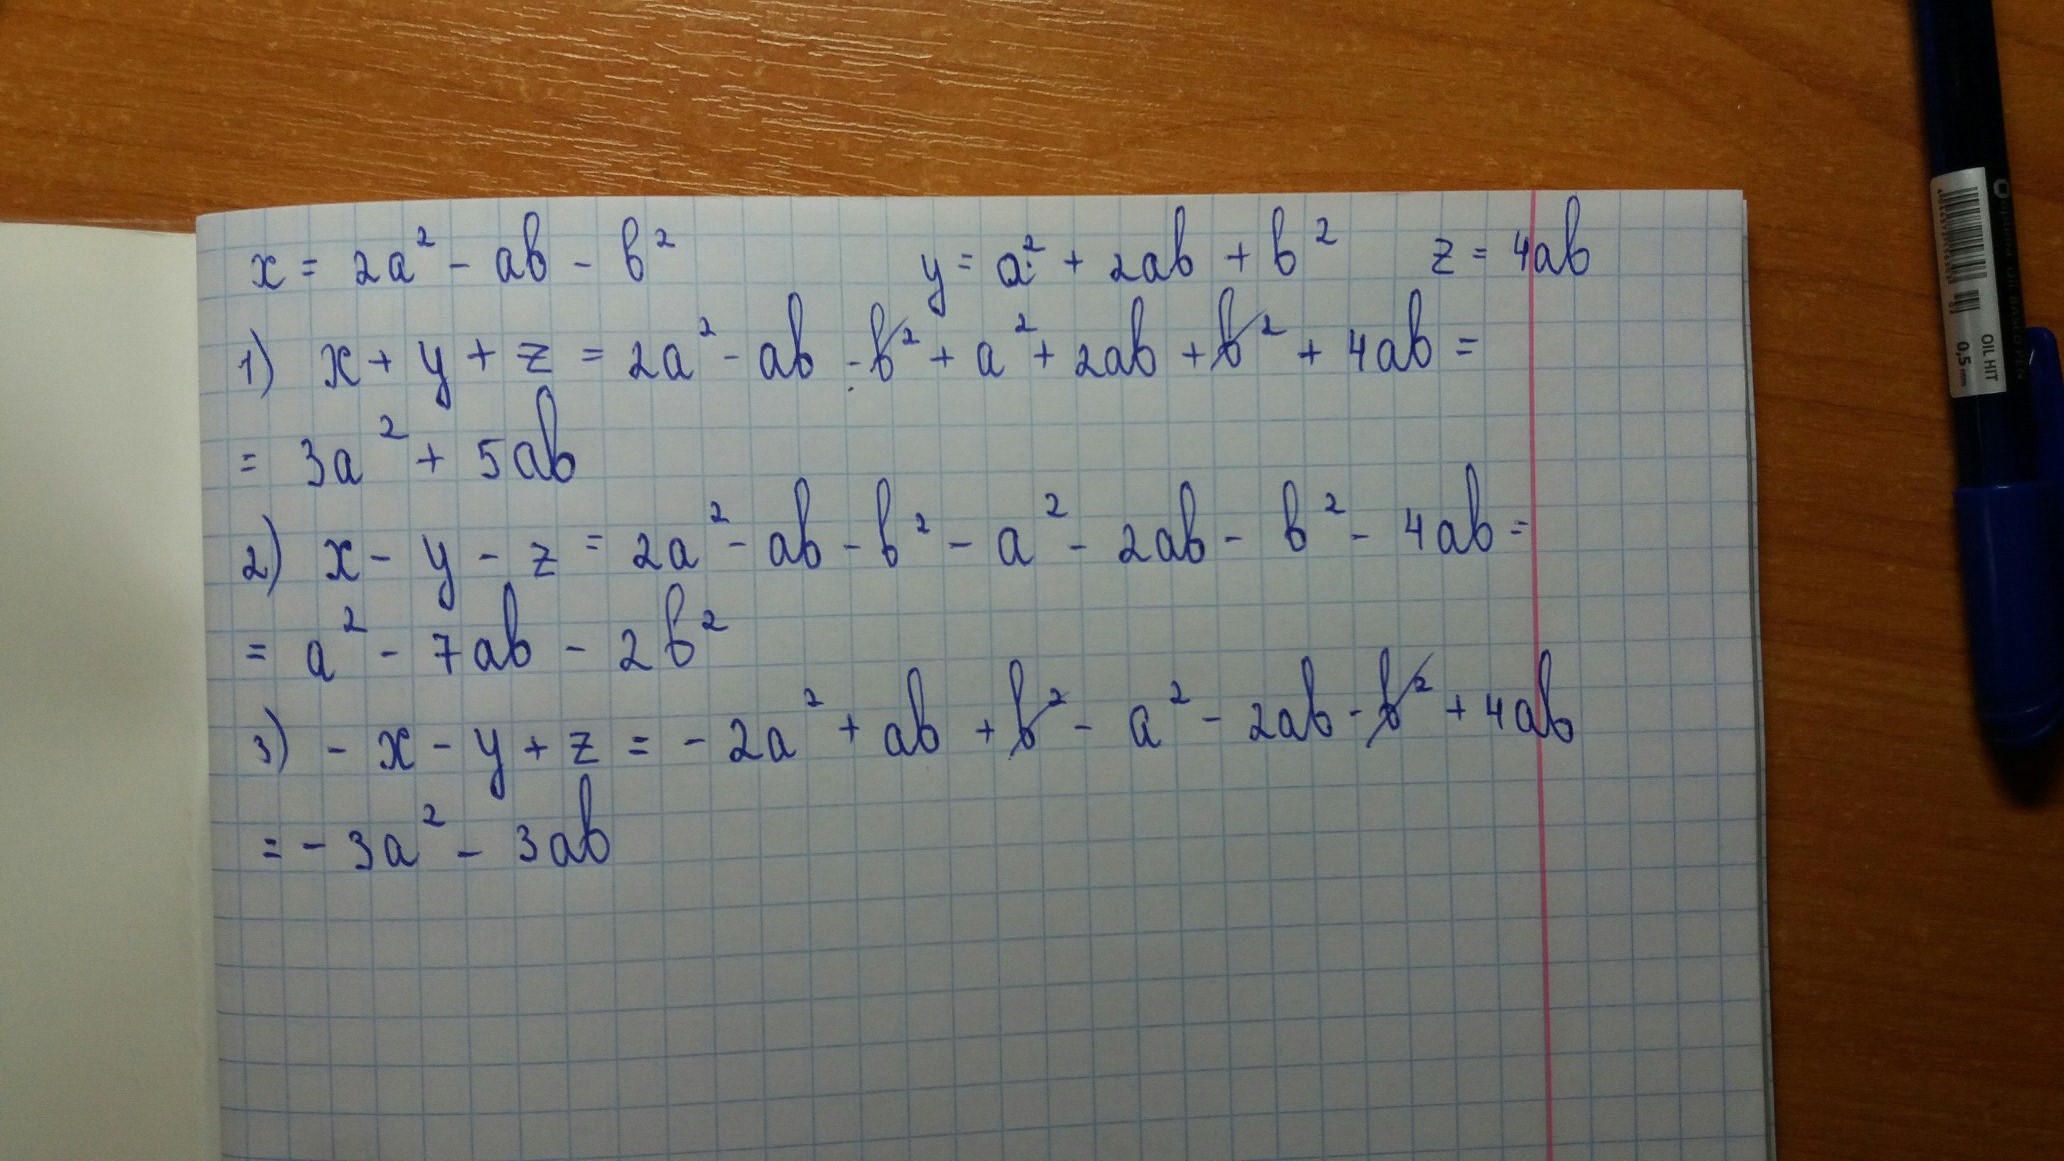 x = 2a² - ab - b² y = a² + 2ab + b² z = 4ab
1) x + y + z = 2a² - ab - b² + a² + 2ab + b² + 4ab =
= 3a² + 5ab
2) x - y - z = 2a² - ab - b² - a² - 2ab - b² - 4ab =
= a² - 7ab - 2b²
3) - x - y + z = - 2a² + ab + b² - a² - 2ab - b² + 4ab
= - 3a² - 3ab
OIL HIT
0,5 mm